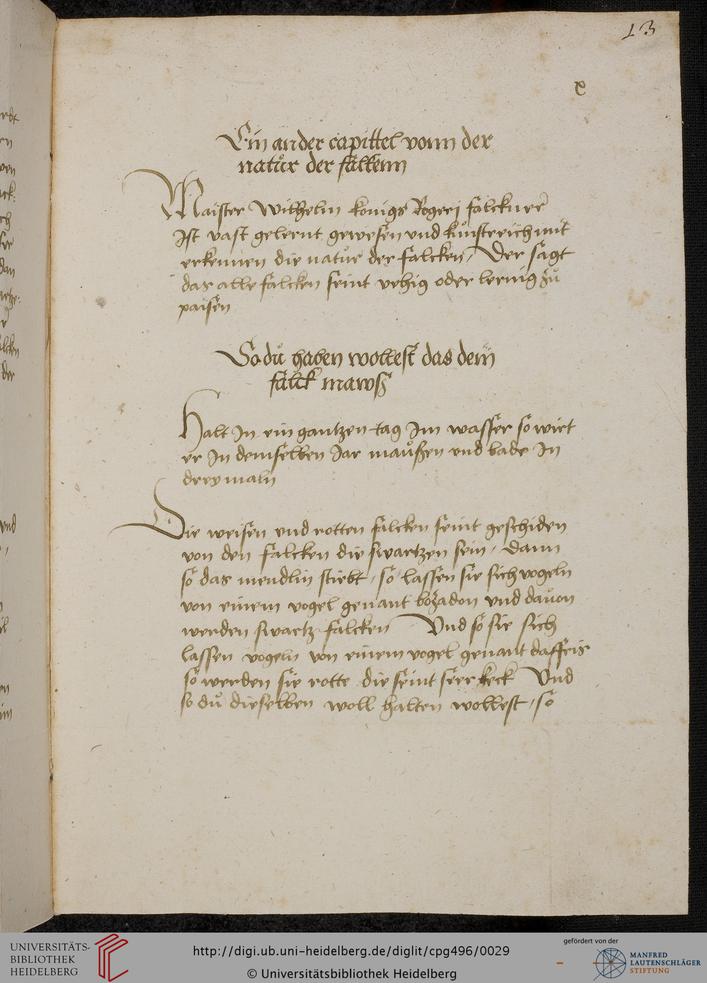 13
x
Ein ander capittel vonn der
natůr der falkenn
Maister Wilhelm konigs Rogerj falckner
Ist vast gelernt gewesen vnd kunstreich mit
erkennen die natur der falcken / Der sagt
das alle falcken seint vehig oder lernig zů
paisen
So dů haben wollest das dein
falck mawsz
Halt In ein gantzen tag Im wasser so wirt
er In demselben Jar maußen vnd bade In
drey maln
Die weisen vnd rotten falcken seint geschiden
von den falcken die swartzen sein / Dann
so das mendlin stirbt / so lassen sie sich vogeln
von einem vogel genant bozadon vnd dauon
werden swartz falcken Vnd so sie sich
lassen vogeln von einem vogel genant daffeis
so werden sie rotte die seint seer keck Vnd
so dů dieselben woll halten wollest / so
UNIVERSITÄTS-
BIBLIOTHEK
HEIDELBERG
http://digi.ub.uni-heidelberg.de/diglit/cpg496/0029
© Universitätsbibliothek Heidelberg
gefördert von der
MANFRED
LAUTENSCHLÄGER
STIFTUNG